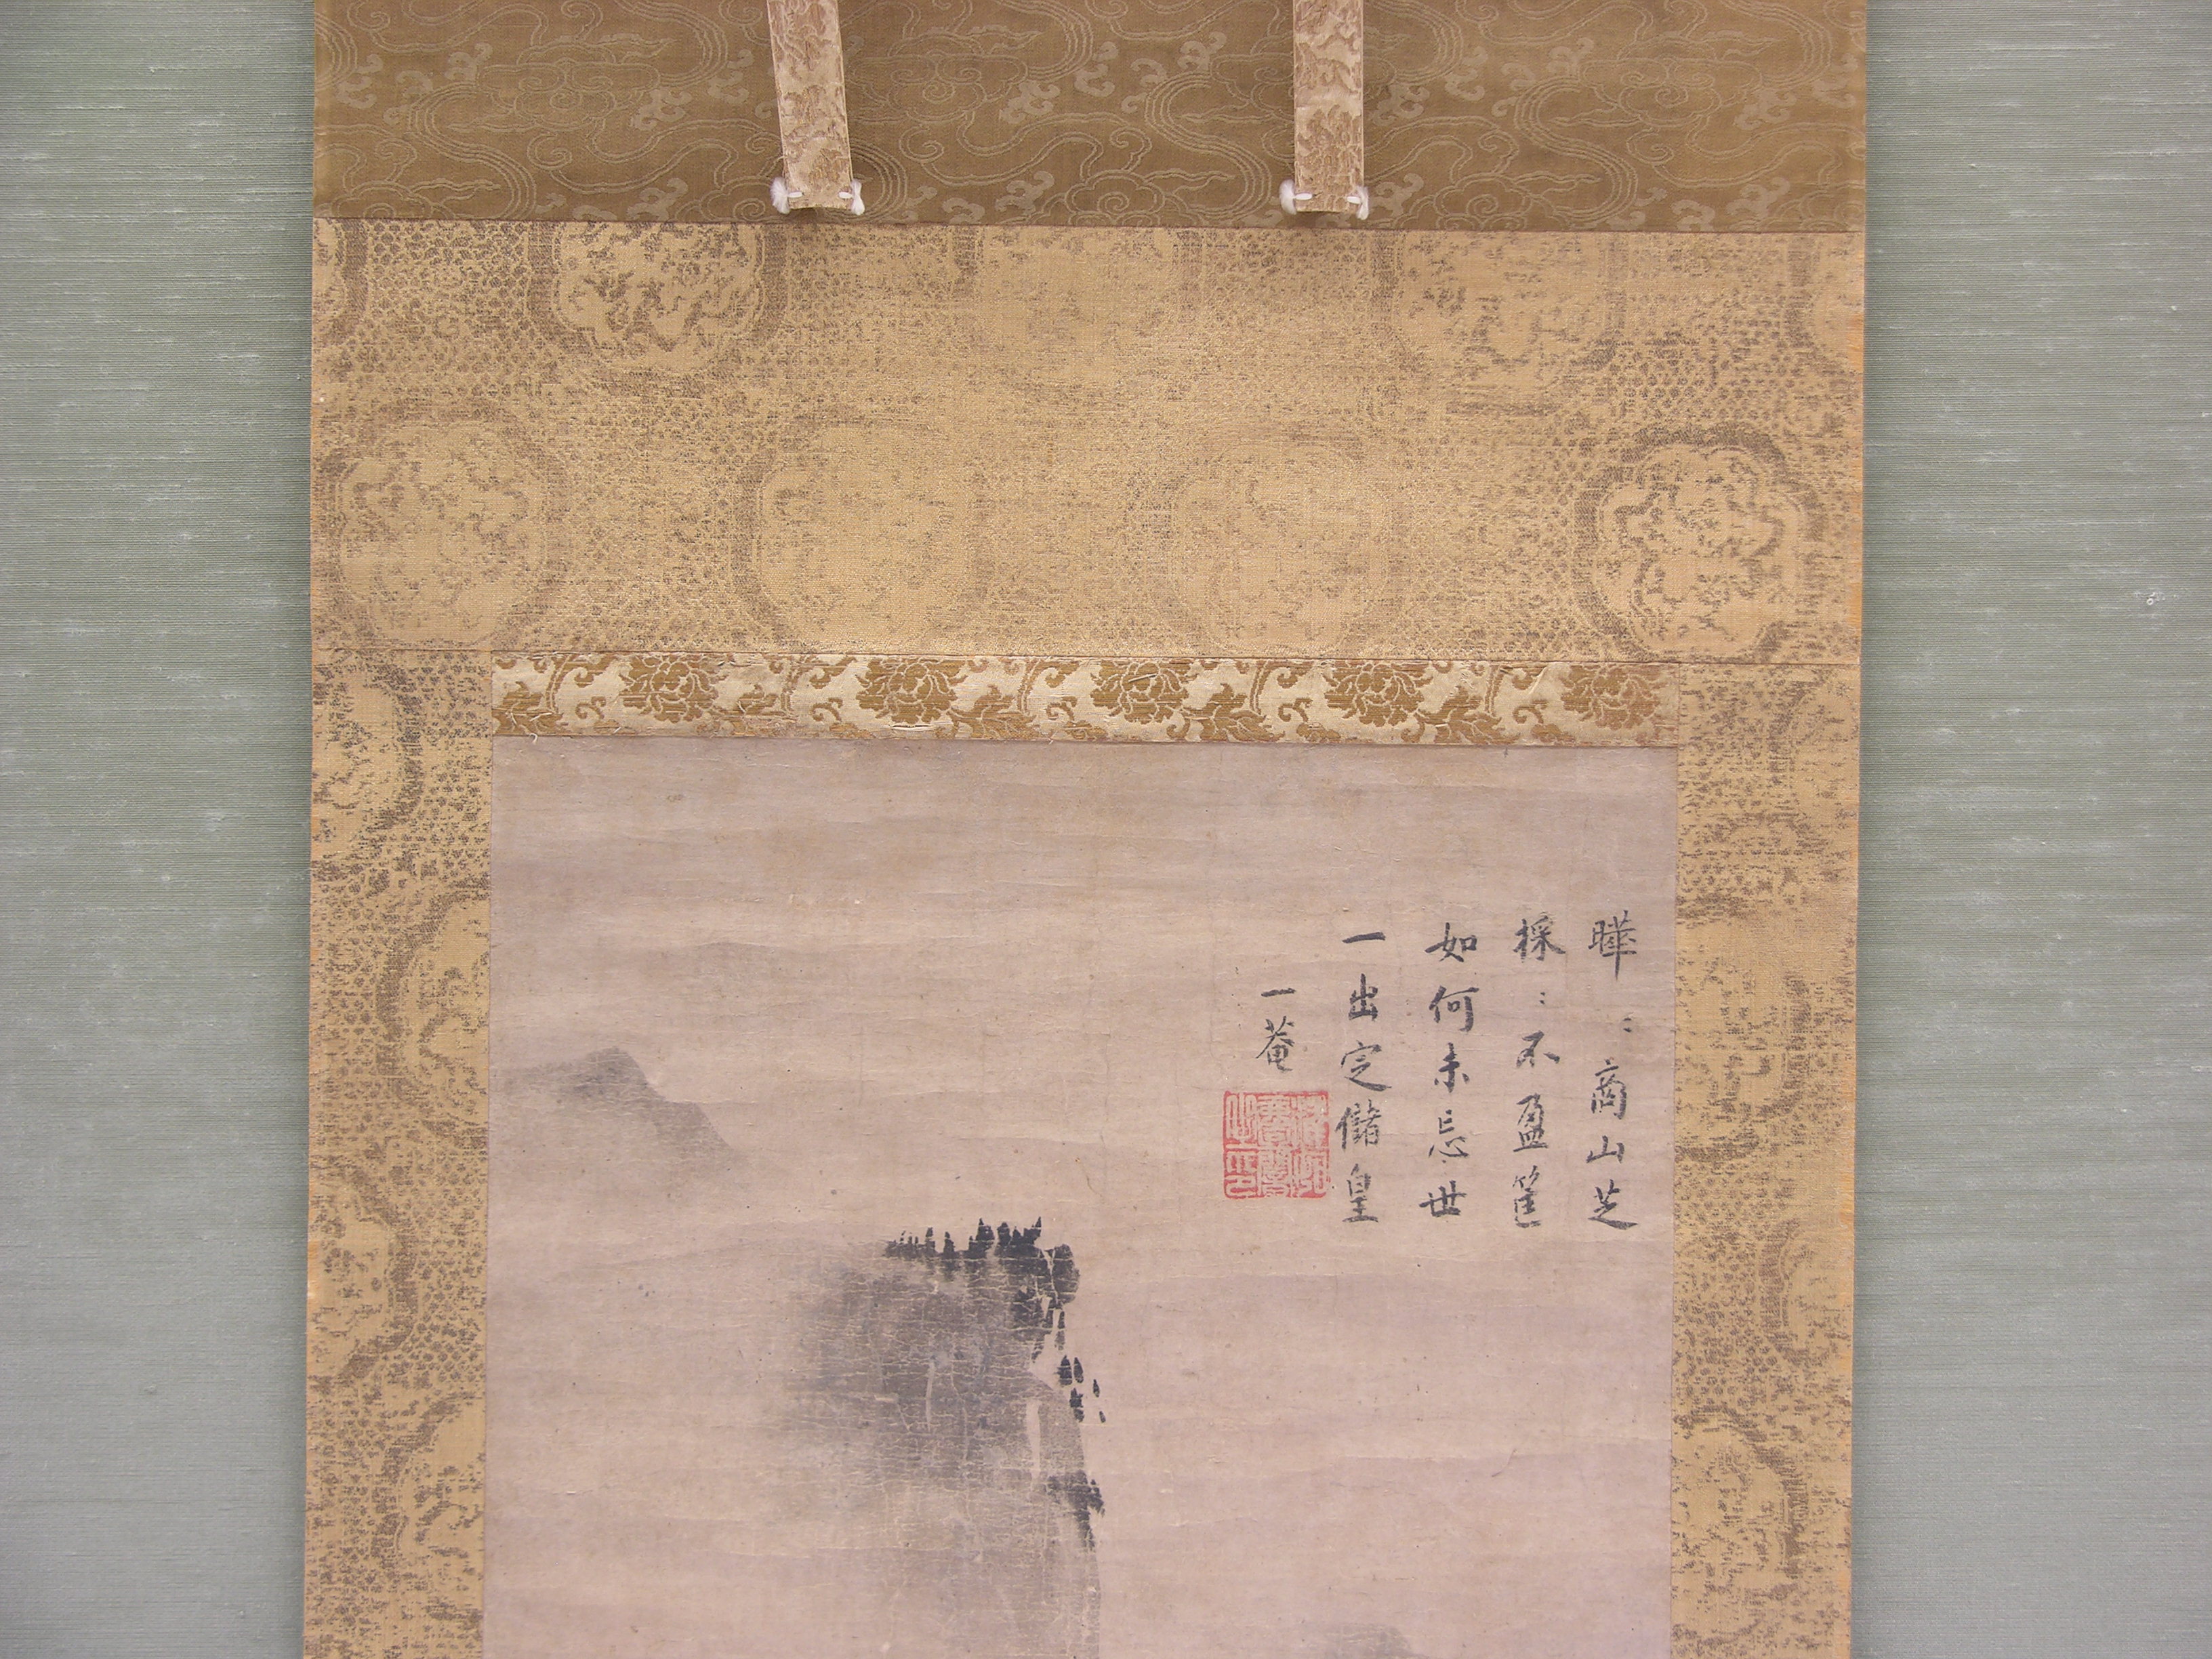 曄〻商山芝
採〻不盈筐
如何未忘世
一出定儲皇
一菴